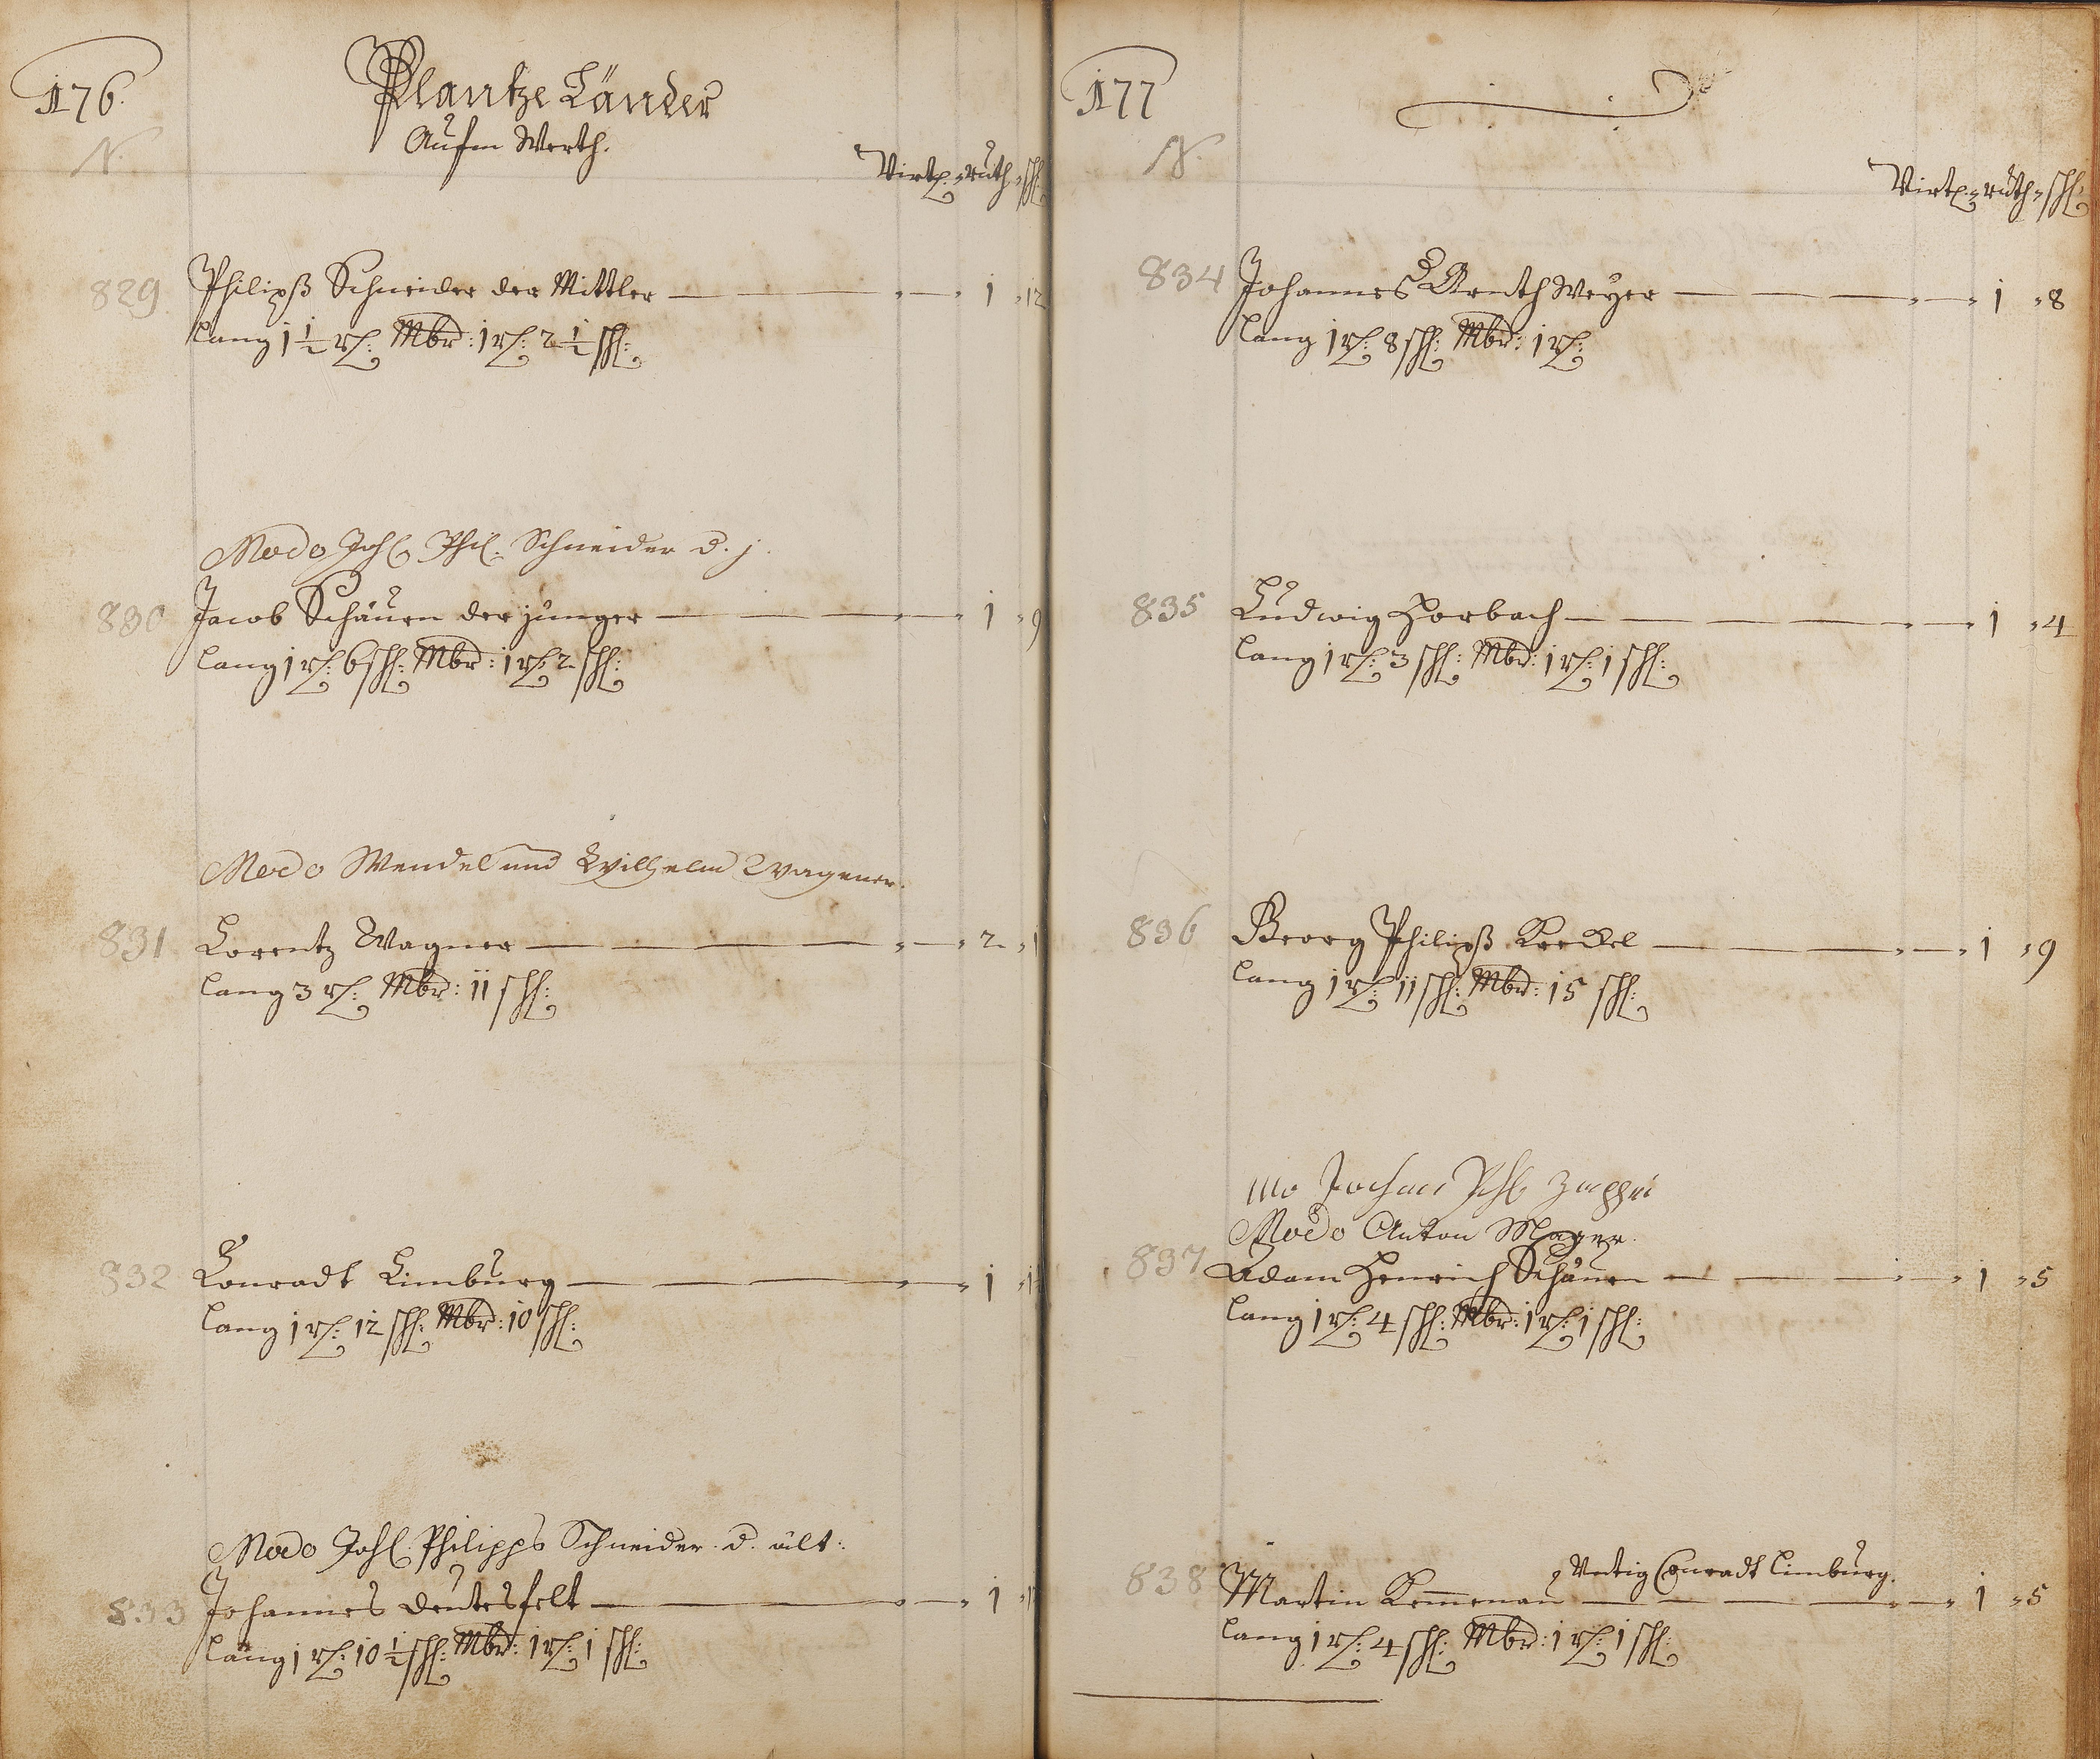 176.
Plantze Länder
Aufm Werth.
N.
Virtl. ruth. schl.
829 Philipß Schneider der Mittler — 1 12
lang 1 1/2 rt: Mbr: 1 rt: 2 1/2 schl:
Modo Joh. Phil. Schneider d. j.
830 Jacob Schäuen der junger — 1 9
lang 1 rt: 6 schl: Mbr: 1 rt: 2 schl:
Modo Wendel und Wilhelm Wagener.
831 Lorentz Wagner — 2 1
lang 3 rt: Mbr: 11 schl:
832 Conradt Limburg — 1
lang 1 rt: 12 schl: Mbr: 10 schl:
Modo Joh. Philipps Schneider d. ält:
833 Johannes deutesfelt — 1
lang 1 rt: 10 1/2 schl: Mbr: 1 rt: 1 schl:
177
N.
Virtl. ruth. schl.
834 Johannes Weyer — 1 8
lang 1 rt: 8 schl: Mbr: 1 rt:
835 Ludwig Horbach — 1 4
lang 1 rt: 3 schl: Mbr: 1 rt: 1 schl:
836 Georg Philipß Keckel — 1 9
lang 1 rt: 11 schl: Mbr: 15 schl:
mo
Modo Anton Mager.
837 Adam Henrich Schäuen — 1 5
lang 1 rt: 4 schl: Mbr: 1 rt: 1 schl:
Conradt Limburg.
838 Martin Kem̅enau — 1 5
lang 1 rt: 4 schl: Mbr: 1 rt: 1 schl: